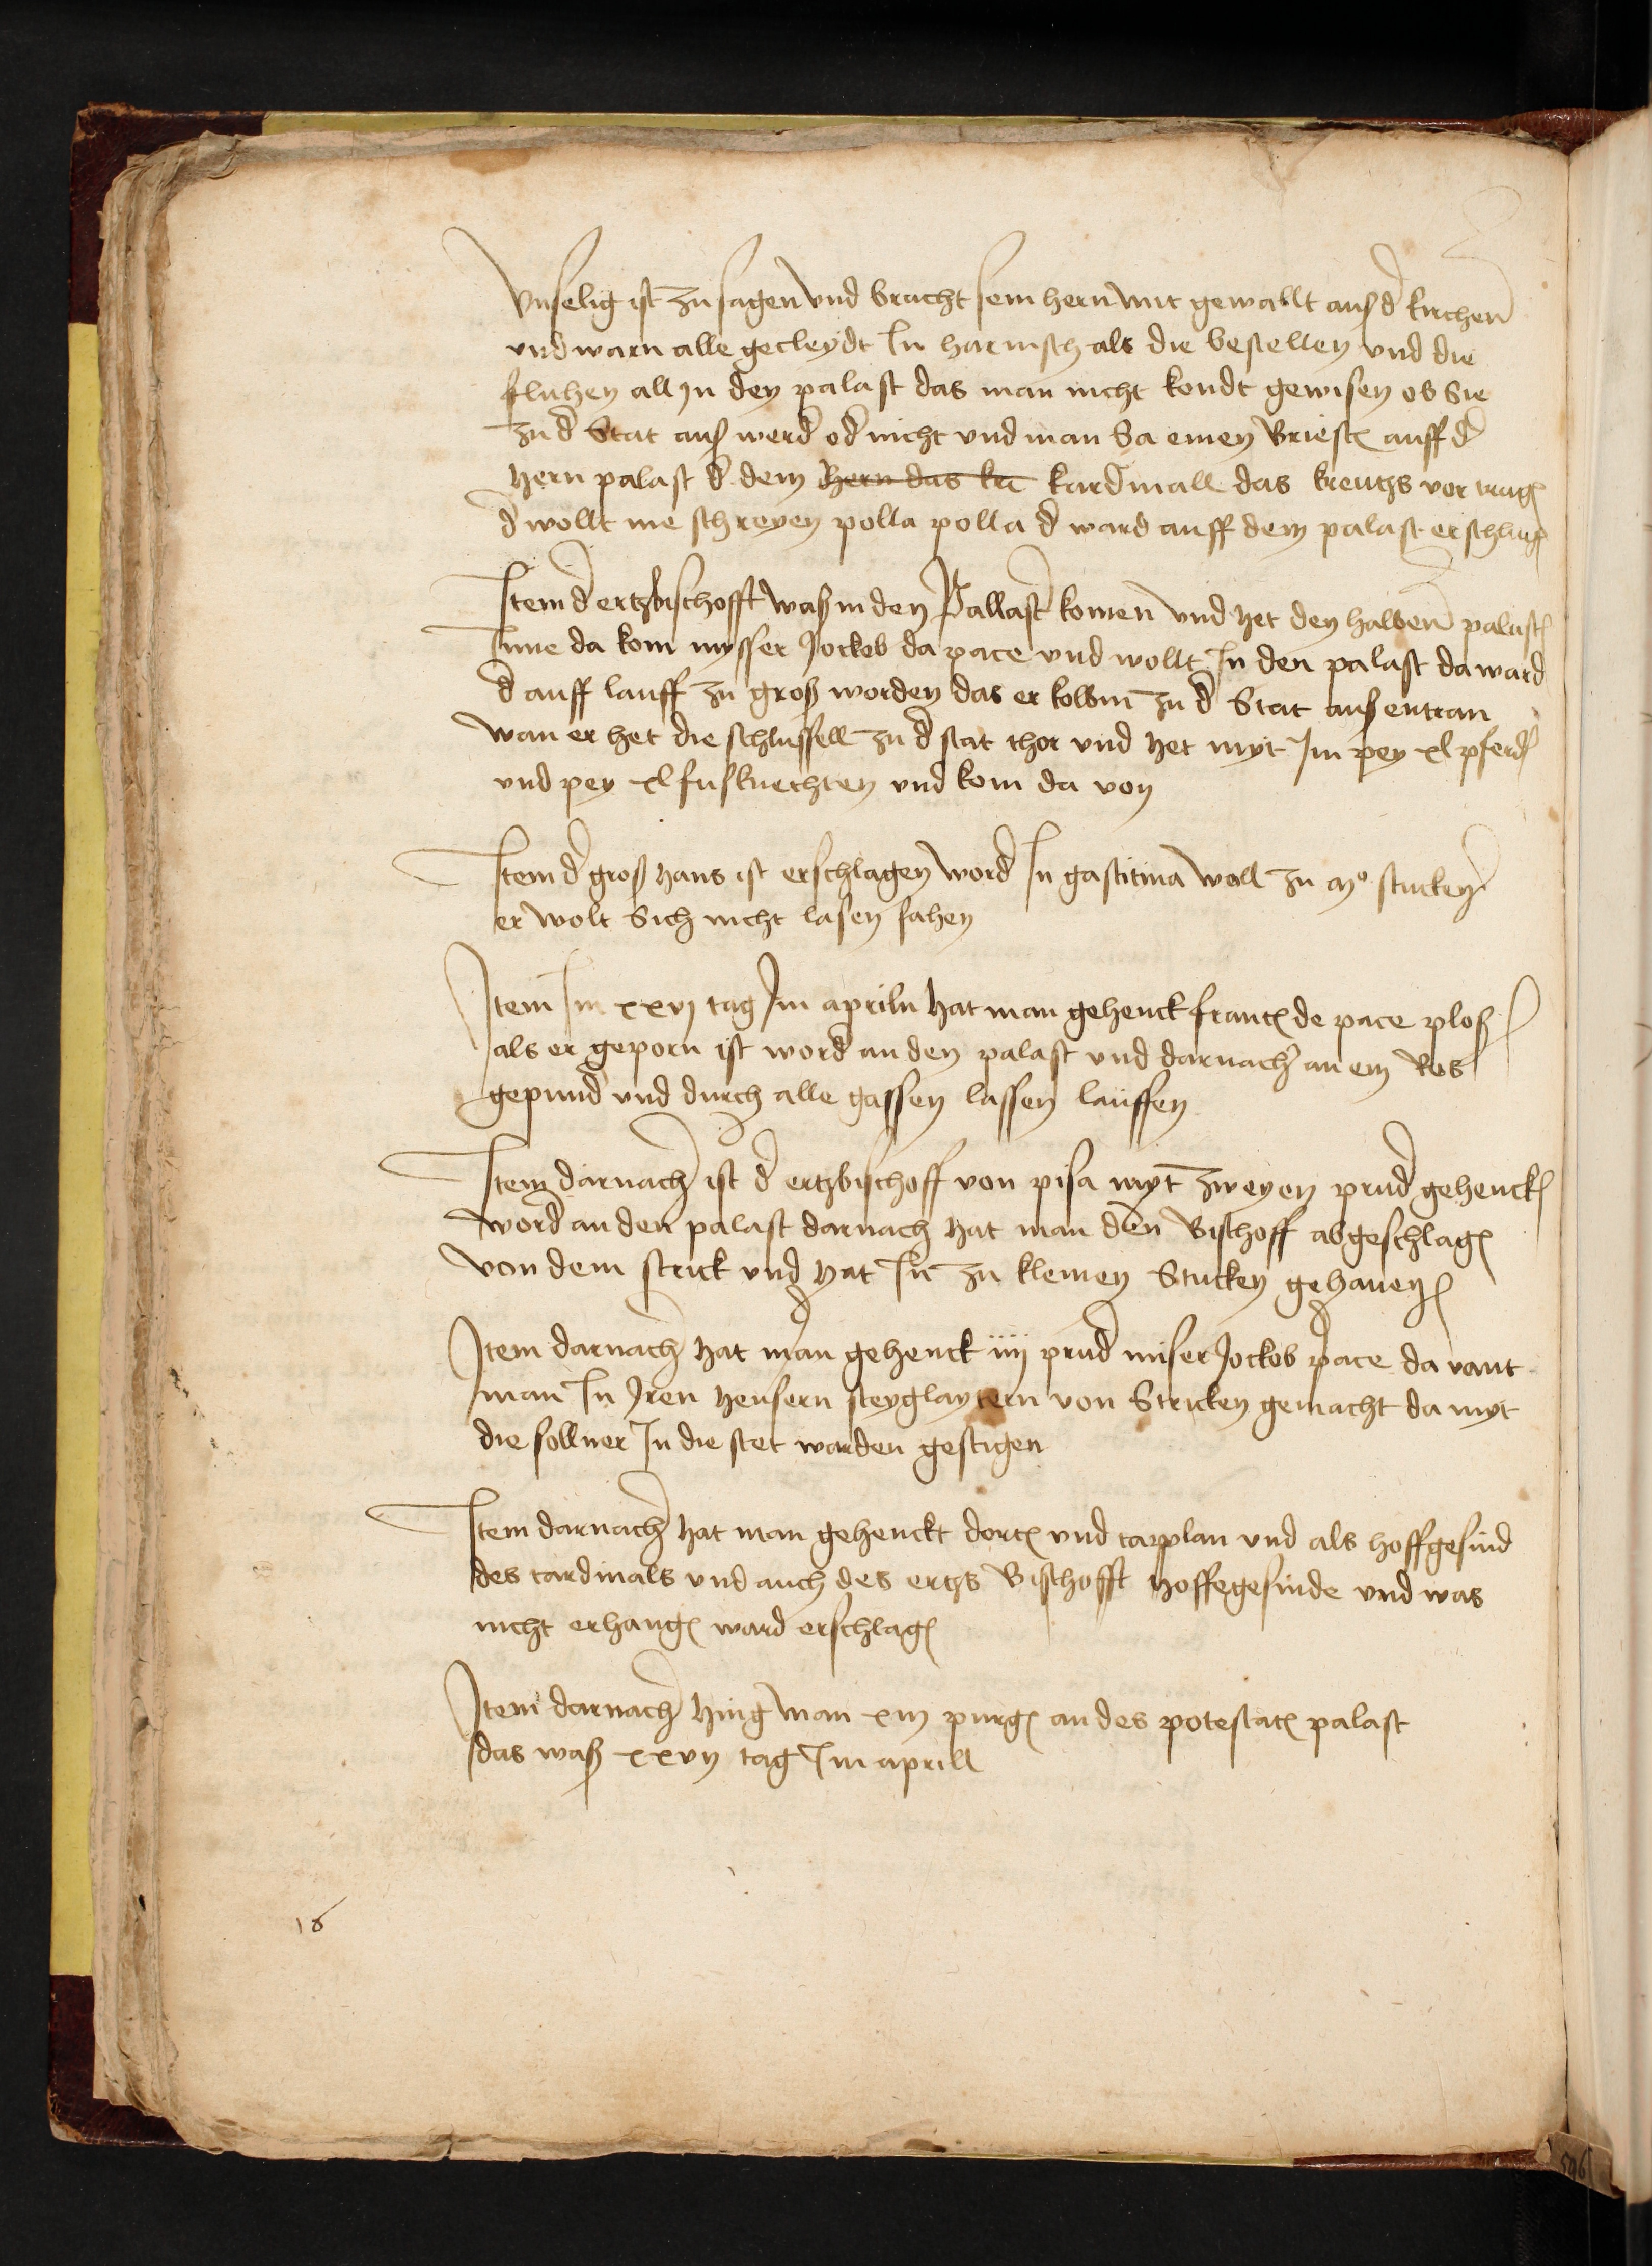 Vnselig ist zu sagen vnd bracht sein hern mit gewallt auß d kirchen
vnd warn alle gecleydt In harnisch als die bestellen vnd die
fluhen all In den palast das man nicht kondt gewisen ob Sie
zu d Stat auß werd od nicht vnd man Sa einen Briest auff d
hern palast d dem hern das kr kardinall das kreutzs vor trag
d wollt nie schreyen polla polla d ward auff dem palast erschlag
Item d ertzbischofft waß in den Pallast komen vnd het den halben palast
Inne da kom mysser Jockob da pace vnd wollt In den palast da ward
d auff lauff zu groß worden das er kom zu d Stat auß entran
wan er het die schlussell zu d stat thor vnd het myt Im pey xl pferd
vnd pey xl fusknechten vnd kom da von
Item d groß hans ist erschlagen word In gastitina woll zu mo stucken
er wolt Sich nicht lasen fahen
Item Im xxvj tag Im apriln hat man gehenck franc de pace ploß
als er geporn ist word an den palast vnd darnach an ein Ros
gepund vnd durch alle gassen lassen lauffen
Item darnach ist d ertzbischoff von pisa myt zweyen prud gehenck
word an den palast darnach hat man den Bischoff abgeschlag
von dem strick vnd hat In zu kleinen Stucken gehauen
Item darnach hat man gehenck iiij prud miser Jockob pace da vant
man In Iren heusern steyglaytern von Stricken gemacht da myt
die sollner In die stet warden gestigen
Item darnach hat man gehenckt dort vnd capplan vnd als hoffgesind
des cardinals vnd auch des ertzs Bischofft hoffegesinde vnd was
nicht erhang ward erschlag
Item darnach hing man xiij purg an des potestat palast
das waß xxvij tag Im aprill
16